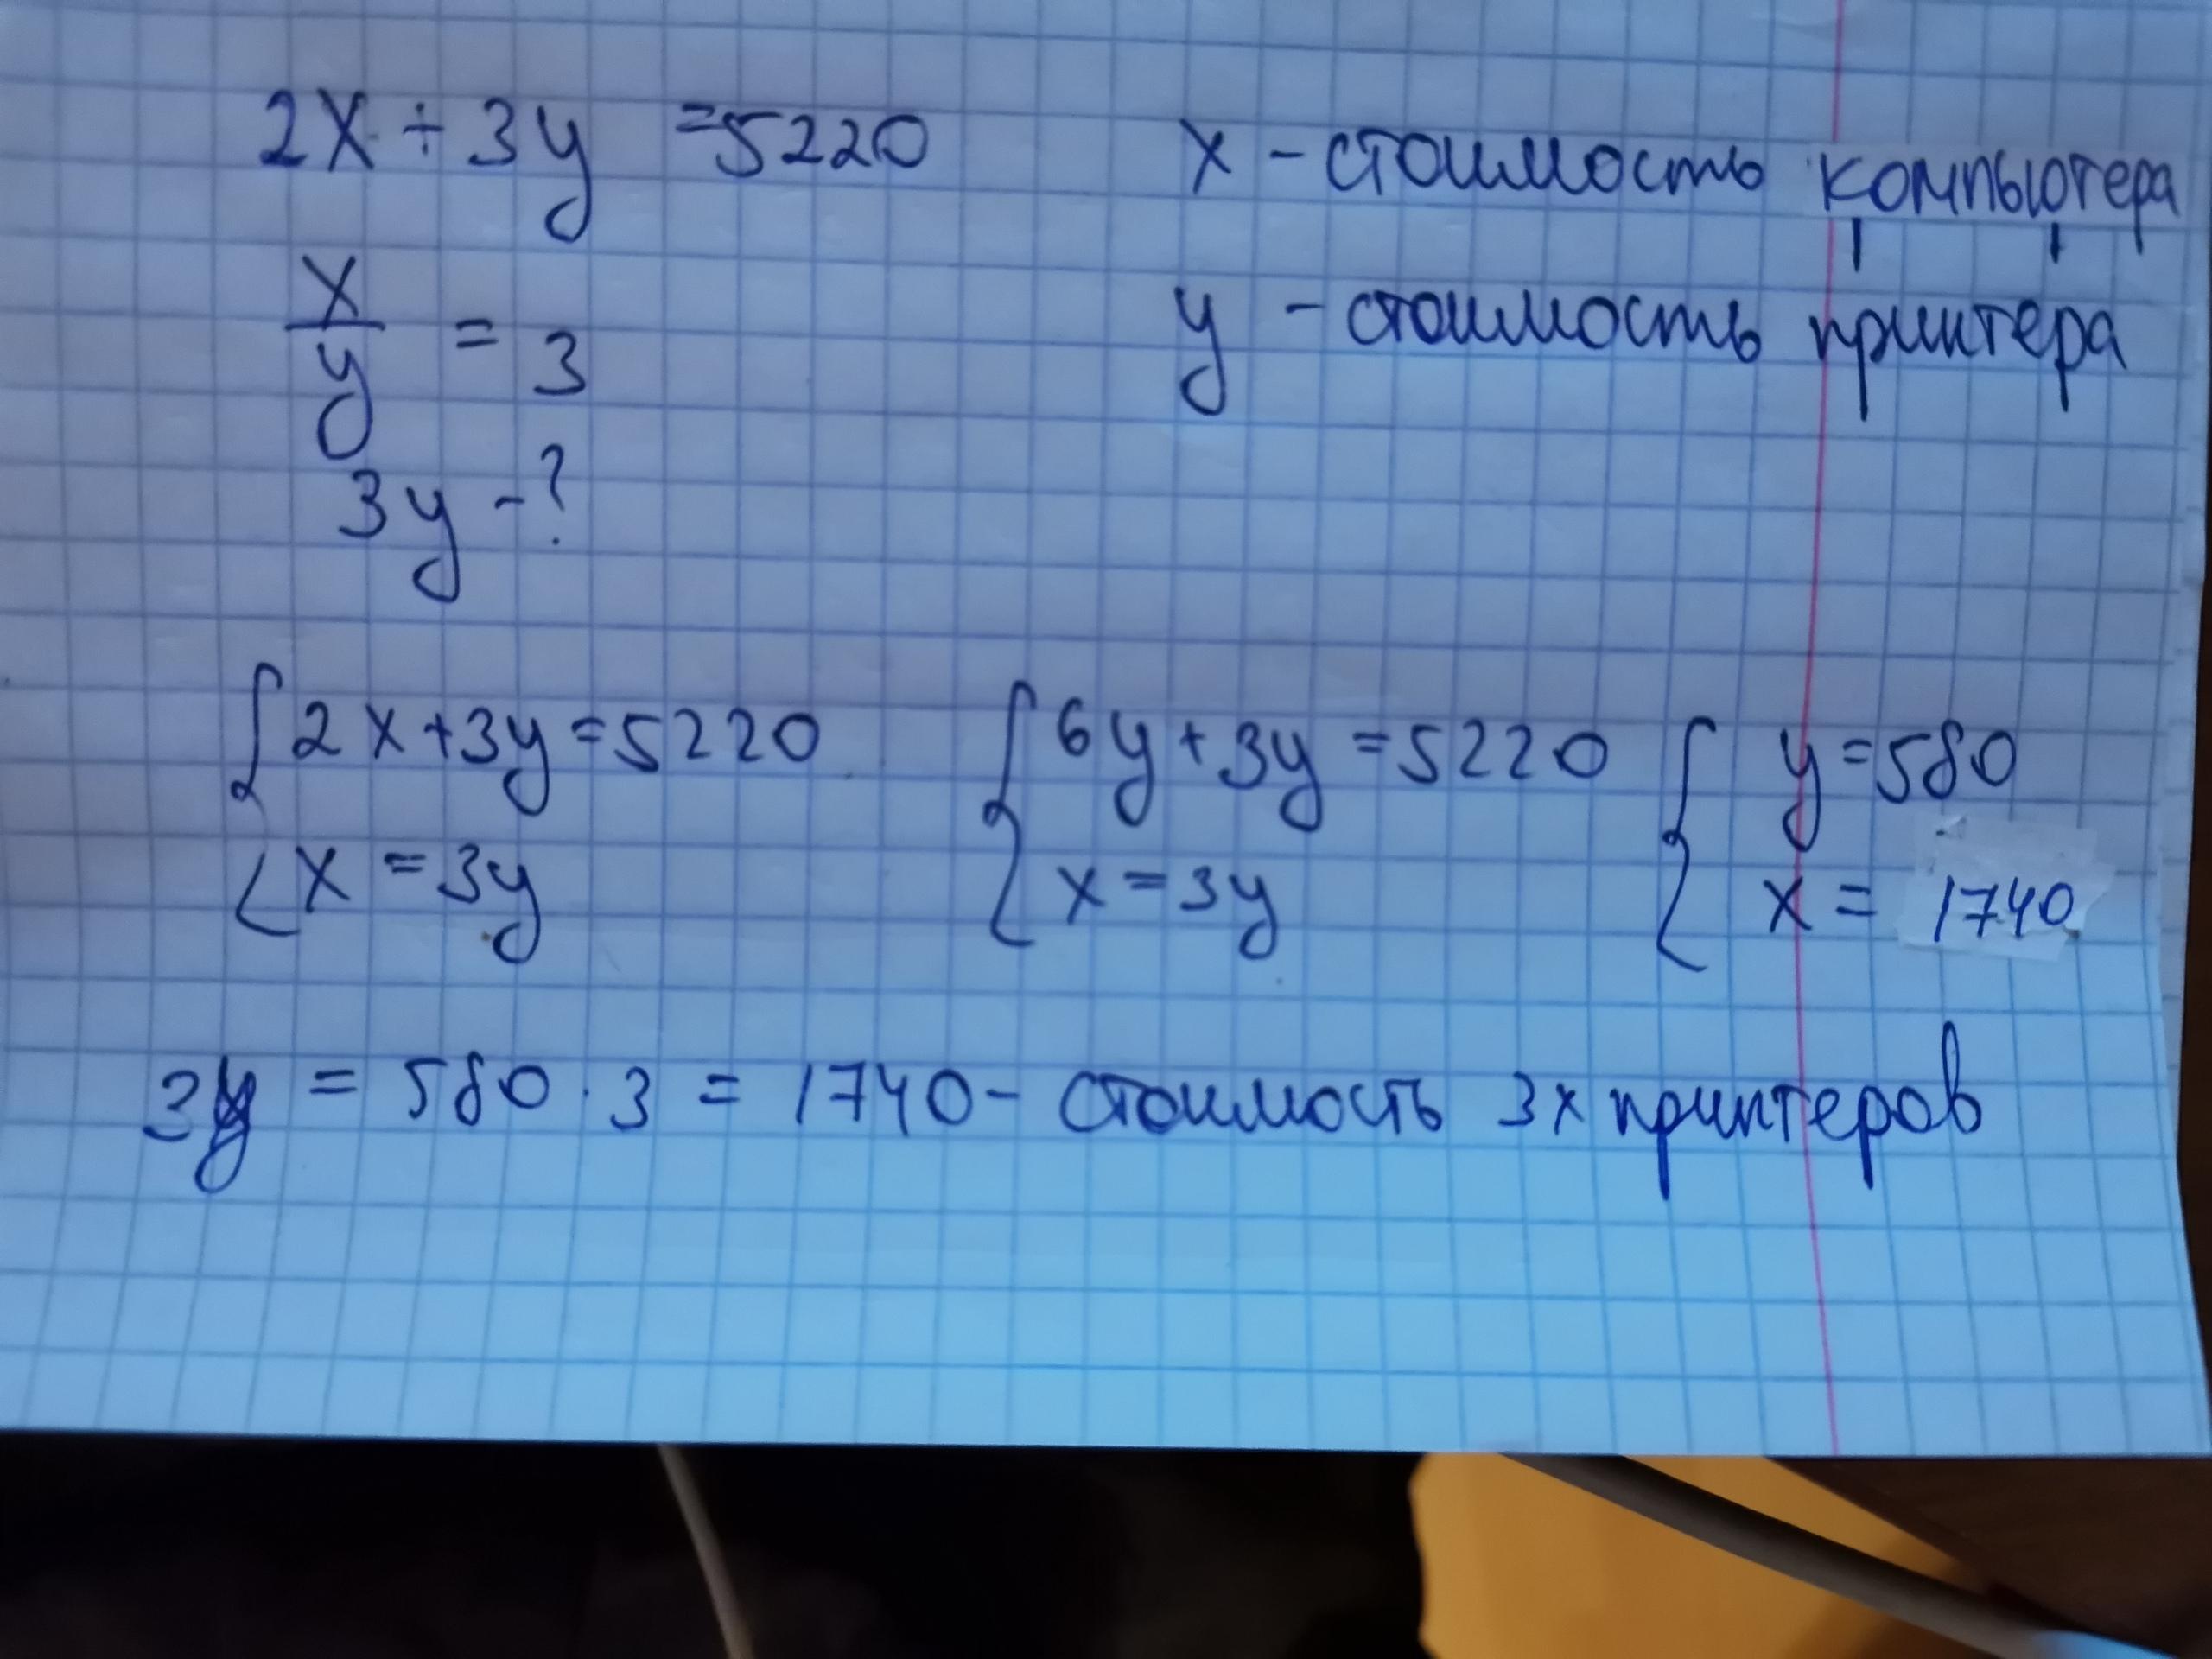 2x + 3y = 5220
x - стоимость компьютера
x/y = 3
y - стоимость принтера
3y - ?
{ 2x + 3y = 5220
x = 3y
{ 6y + 3y = 5220
x = 3y
{ y = 580
x = 1740
3y = 580 · 3 = 1740 - стоимость 3х принтеров